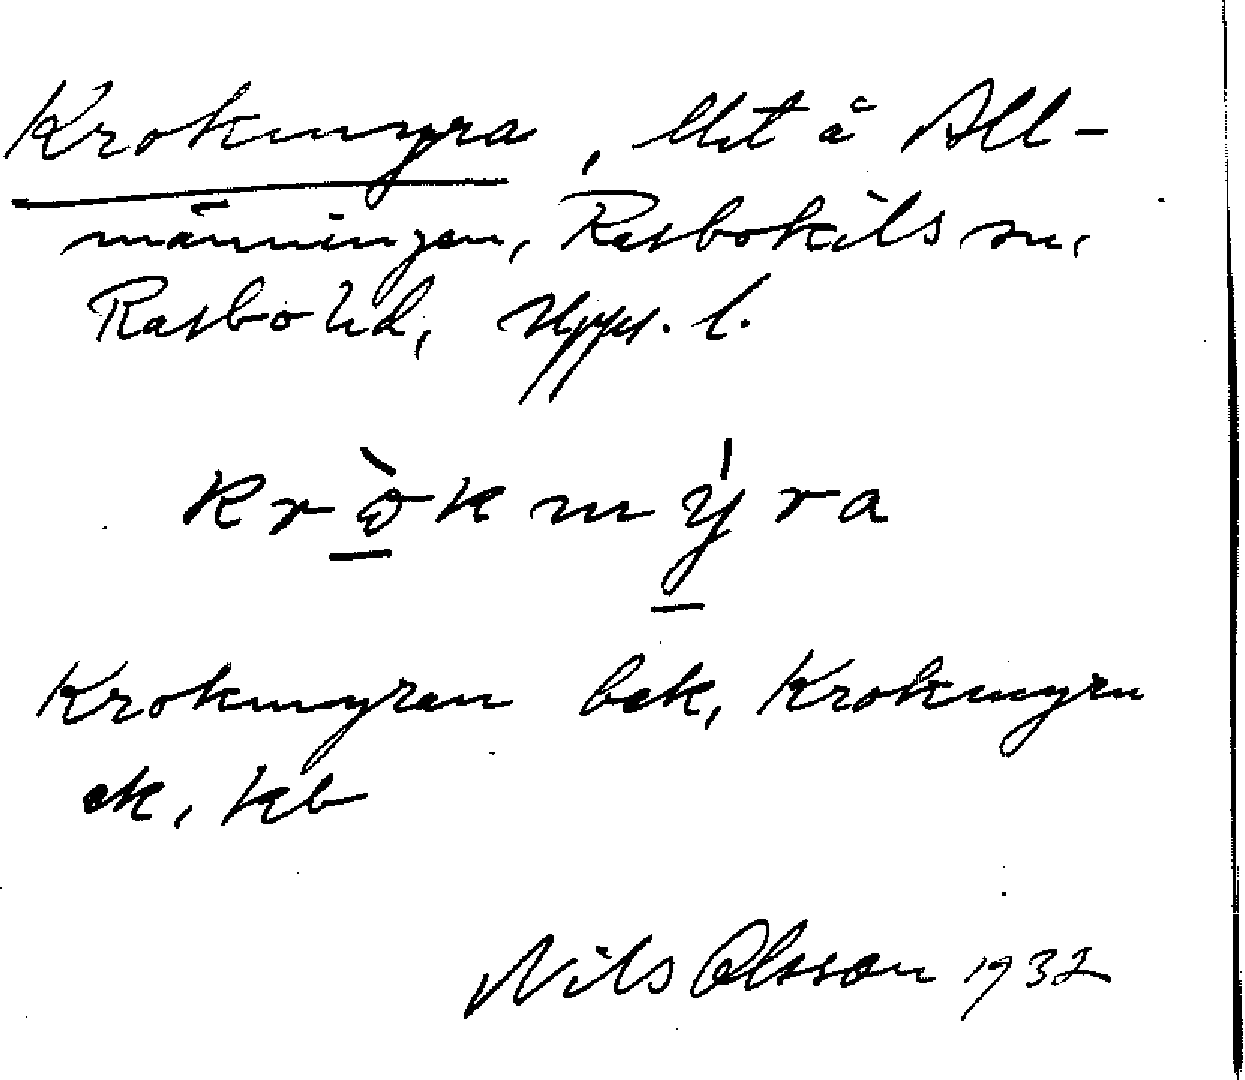 Krokmyra, Utet å All-
männingen, Rasbokils sn,
Rasbo hd, Upps. l.
kròkmy̍ra
Krokmyran bek, Krokmyrn
ek, kb
Nils Olsson 1932